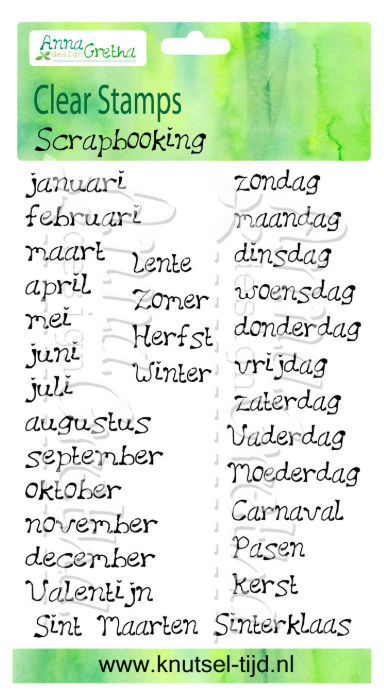 Anna
design
Gretha
Clear Stamps
Scrapbooking
januari
februari
maart
april
mei
juni
juli
augustus
september
oktober
november
december
Valentijn
Lente
Zomer
Herfst
Winter
zondag
maandag
dinsdag
woensdag
donderdag
vrijdag
zaterdag
Vaderdag
Moederdag
Carnaval
Pasen
Kerst
Sint Maarten Sinterklaas
www.knutsel-tijd.nl